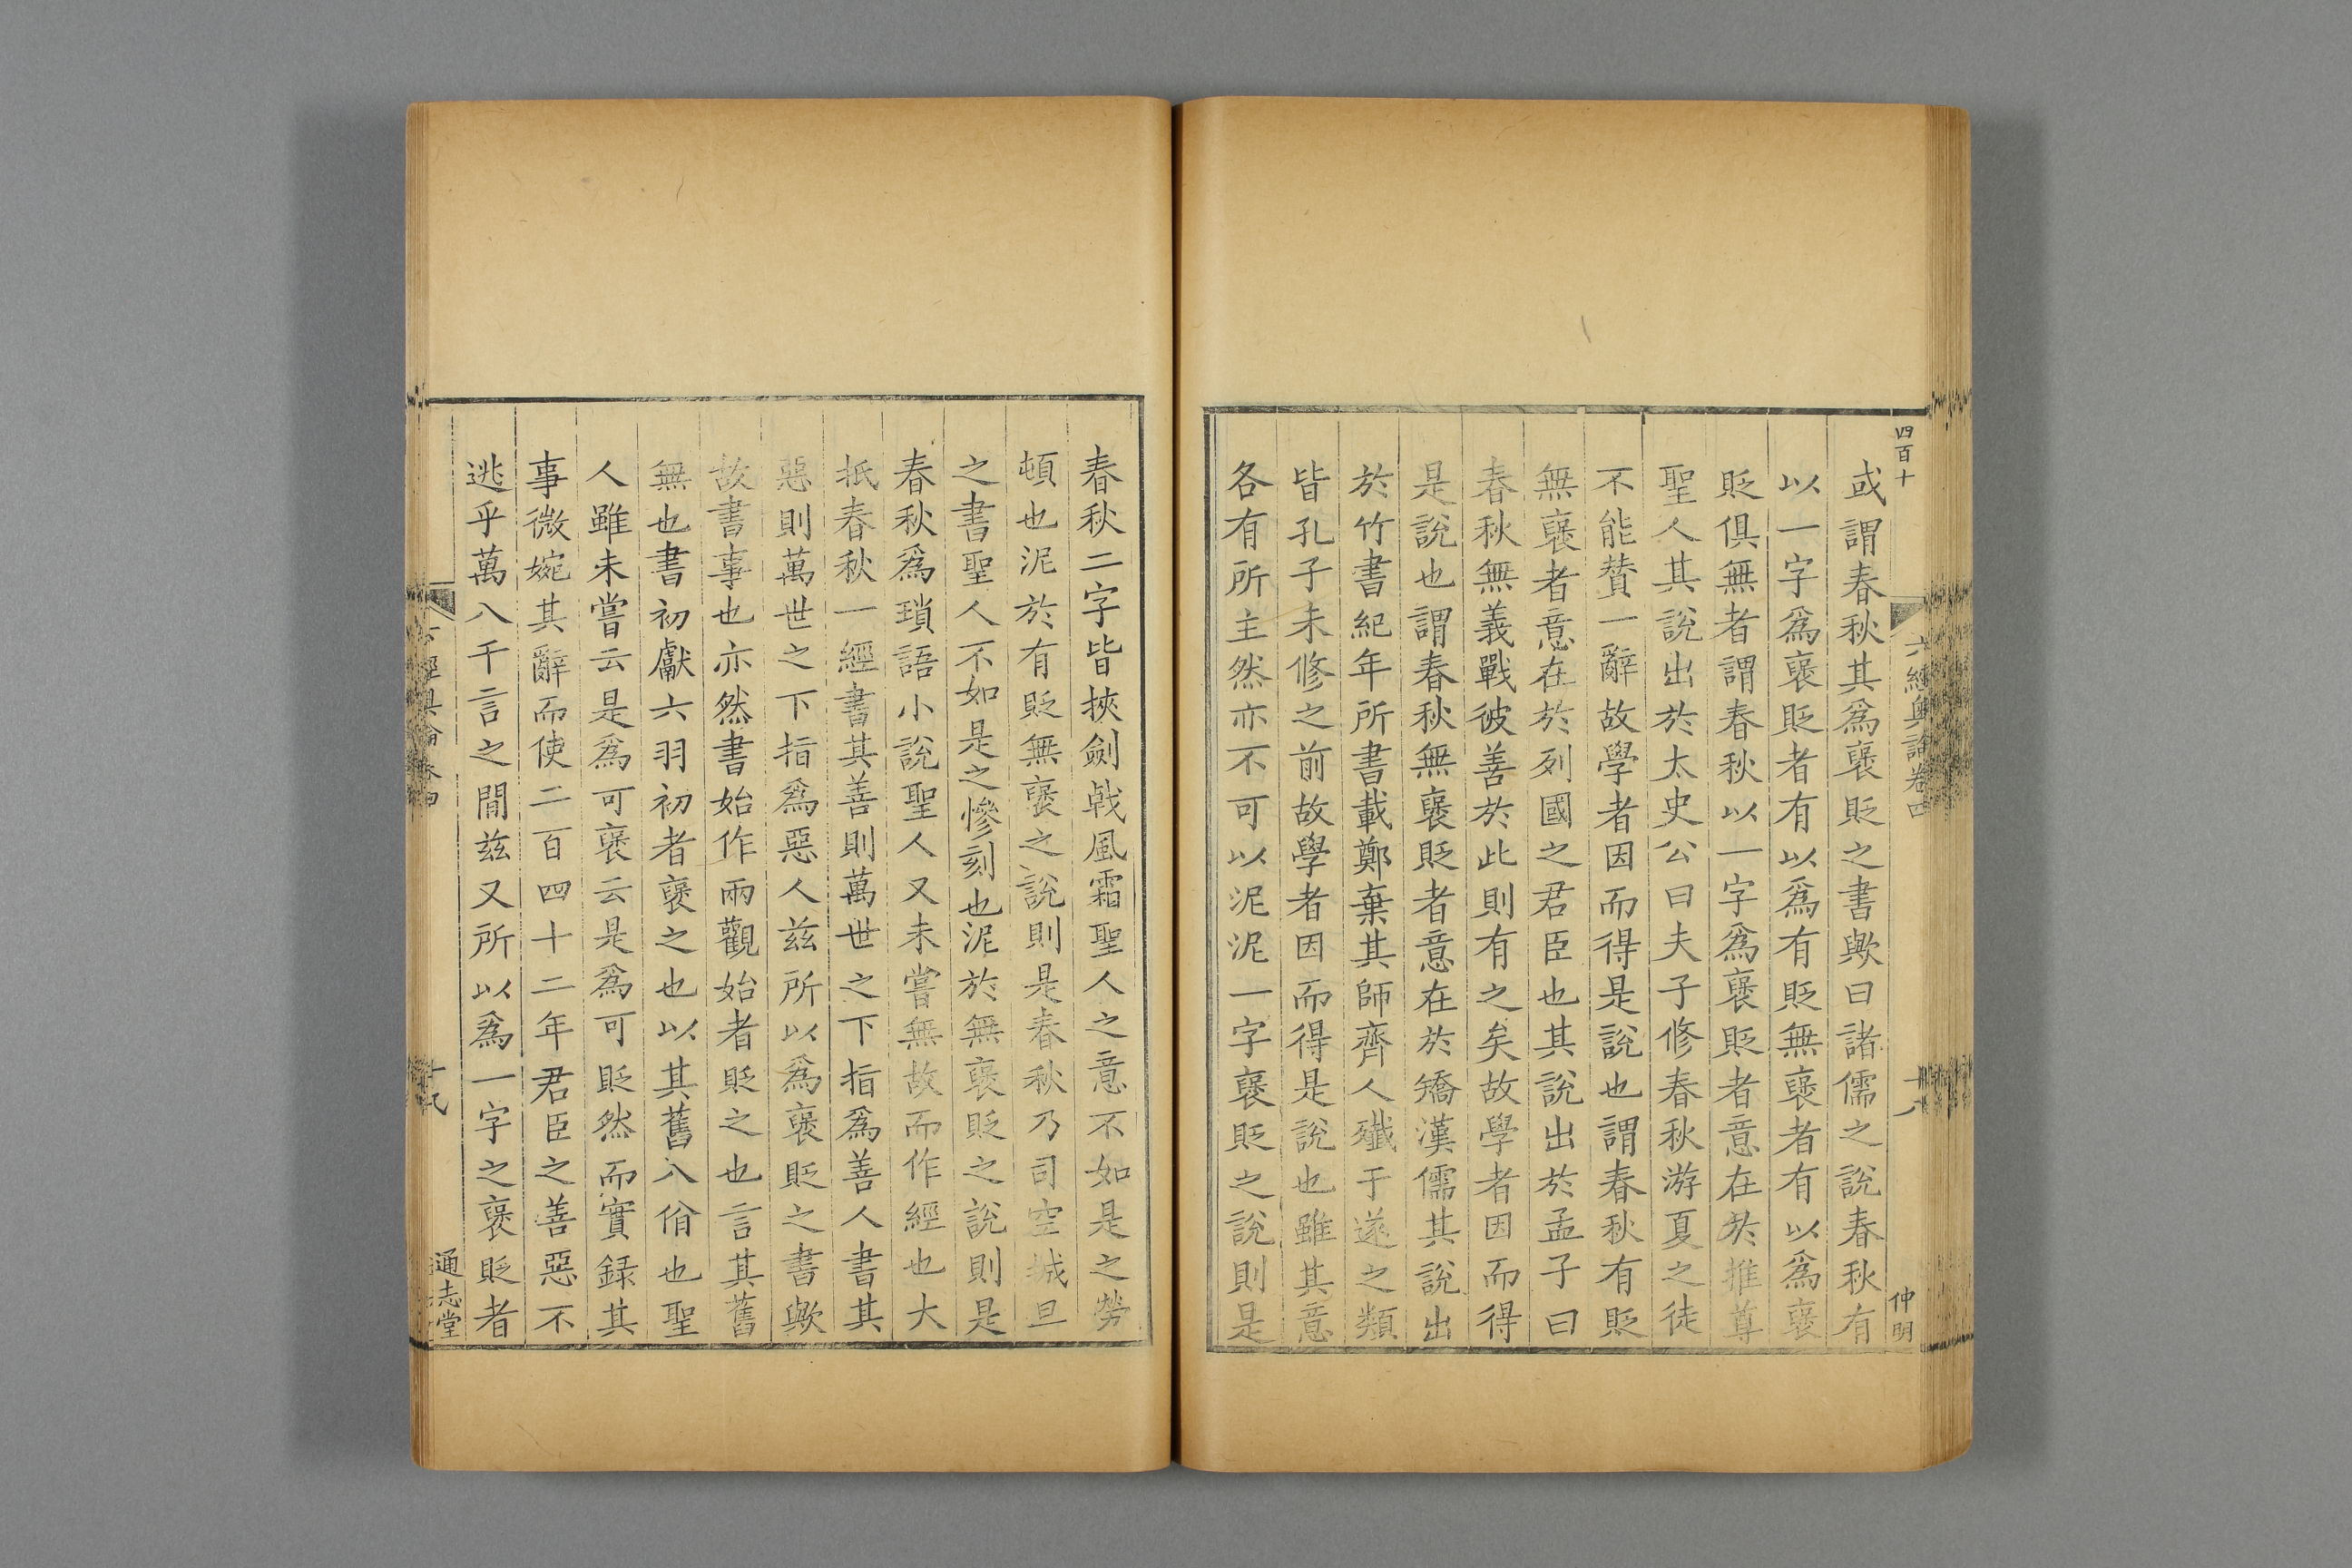 四百十
六經奧論卷四
十八
仲明
或謂春秋其爲襃貶之書歟曰諸儒之說春秋有
以一字爲襃貶者有以爲有貶無襃者有以爲襃
貶俱無者謂春秋以一字爲襃貶者意在於推尊
聖人其說出於太史公曰夫子修春秋游夏之徒
不能賛一辭故學者因而得是說也謂春秋有貶
無襃者意在於列國之君臣也其說出於孟子曰
春秋無義戰彼善於此則有之矣故學者因而得
是說也謂春秋無襃貶者意在於矯漢儒其說出
於竹書紀年所書載鄭棄其師齊人殱于遂之類
皆孔子未修之前故學者因而得是說也雖其意
各有所主然亦不可以泥泥一字襃貶之說則是
春秋二字皆挾劍戟風霜聖人之意不如是之勞
頓也泥於有貶無襃之說則是春秋乃司空城旦
之書聖人不如是之慘刻也泥於無襃貶之說則是
春秋爲瑣語小說聖人又未嘗無故而作經也大
抵春秋一經書其善則萬世之下指爲善人書其
惡則萬世之下指爲惡人兹所以爲襃貶之書歟
故書事也亦然書始作兩觀始者貶之也言其舊
無也書初獻六羽初者襃之也以其舊八佾也聖
人雖未嘗云是爲可襃云是爲可貶然而實録其
事微婉其辭而使二百四十二年君臣之善惡不
逃乎萬八千言之間兹又所以爲一字之襃貶者
六經奧論卷四
十九
通志堂